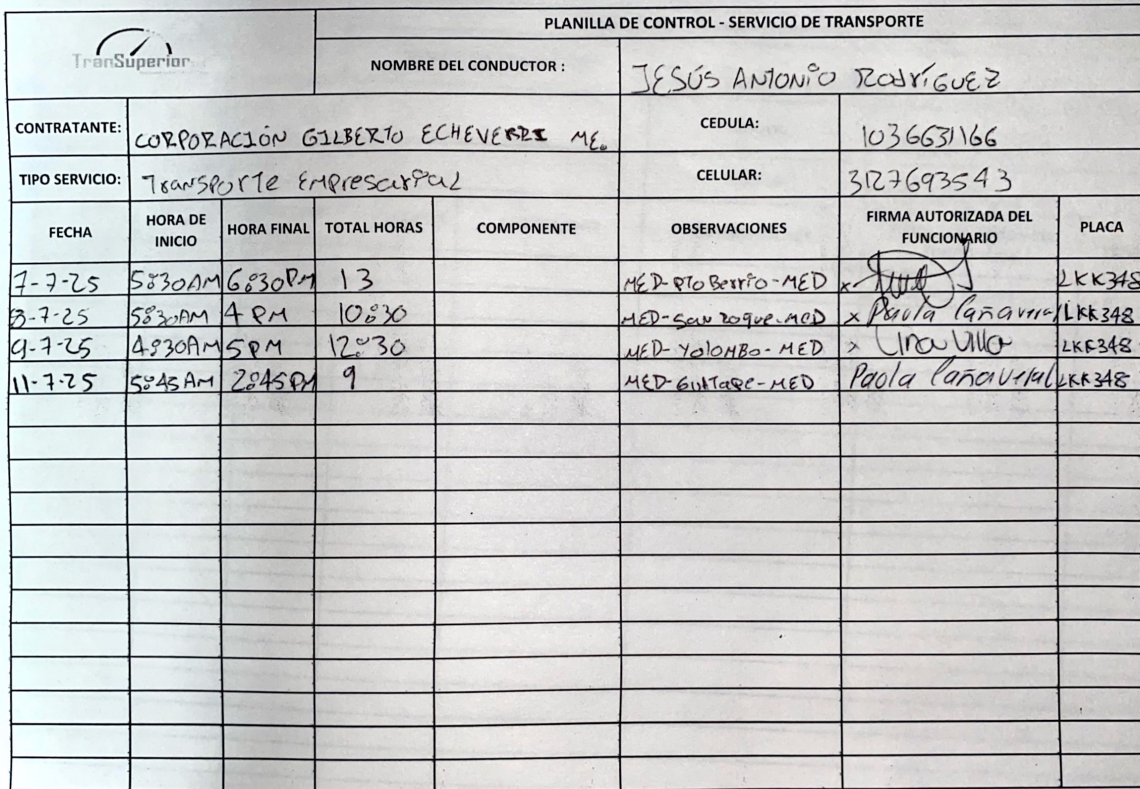 TranSuperior
PLANILLA DE CONTROL - SERVICIO DE TRANSPORTE
NOMBRE DEL CONDUCTOR : JESÚS ANTONIO RODRÍGUEZ
CONTRATANTE: CORPORACIÓN GILBERTO ECHEVERRI ME. CEDULA: 1036631166
TIPO SERVICIO: Transporte Empresarial CELULAR: 3127693543
FECHA HORA DE INICIO HORA FINAL TOTAL HORAS COMPONENTE OBSERVACIONES FIRMA AUTORIZADA DEL FUNCIONARIO PLACA
7-7-25 5:30AM 6:30PM 13 MED-PTO Berrio-MED x LKK348
8-7-25 5:30AM 4 PM 10:30 MED-San Roque-MED x Paola Cañaveral LKK348
9-7-25 4:30AM 5PM 12:30 MED-YOLOMBO-MED x Lina Villa LKK348
11-7-25 5:45 AM 2:45PM 9 MED-GUATAPE-MED Paola Cañaveral LKK348